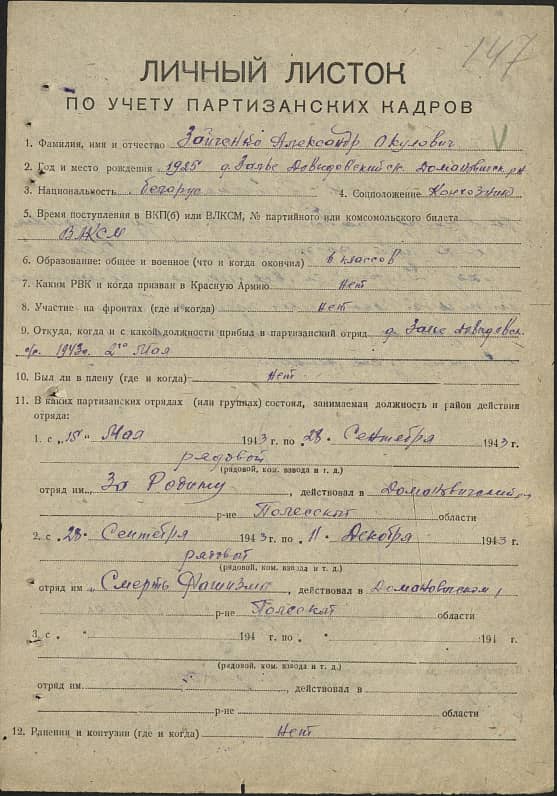 147
ЛИЧНЫЙ ЛИСТОК
ПО УЧЕТУ ПАРТИЗАНСКИХ КАДРОВ
1. Фамилия, имя и отчество Зайченко Александр Окулович V
2. Год и место рождения 1925 д. Залье Давидовский с/с. Домановичск. р-н
3. Национальность беларус 4. Соцположение Колхозник
5. Время поступления в ВКП(б) или ВЛКСМ, № партийного или комсомольского билета
ВЛКСМ
6. Образование: общее и военное (что и когда окончил) 6 классов
7. Каким РВК и когда призван в Красную Армию Нет
8. Участие на фронтах (где и когда) Нет
9. Откуда, когда и с какой должности прибыл в партизанский отряд д. Залье Давидовск.
с/с. 1943г. 2го Мая
10. Был ли в плену (где и когда) Нет
11. В каких партизанских отрядах (или группах) состоял, занимаемая должность и район действия
отряда:
1. с „15“ Мая 1943 г. по „28 Сентября 1943 г.
рядовой
(рядовой, ком. взвода и т. д.)
отряд им. „За Родину“, действовал в Домановический
р-не Полесской области
2. с „28“ Сентября 1943 г. по „11 Декабря 1943
рядовой
(рядовой, ком. взвода и т. д.)
отряд им „Смерть Фашизму“, действовал в Домановичском
р-не Полесской области
3. с „ “ 194 г. по „ 194 г.
(рядовой, ком. взвода и т. д.)
отряд им. , действовал в
р-не области
12. Ранения и контузии (где и когда) Нет